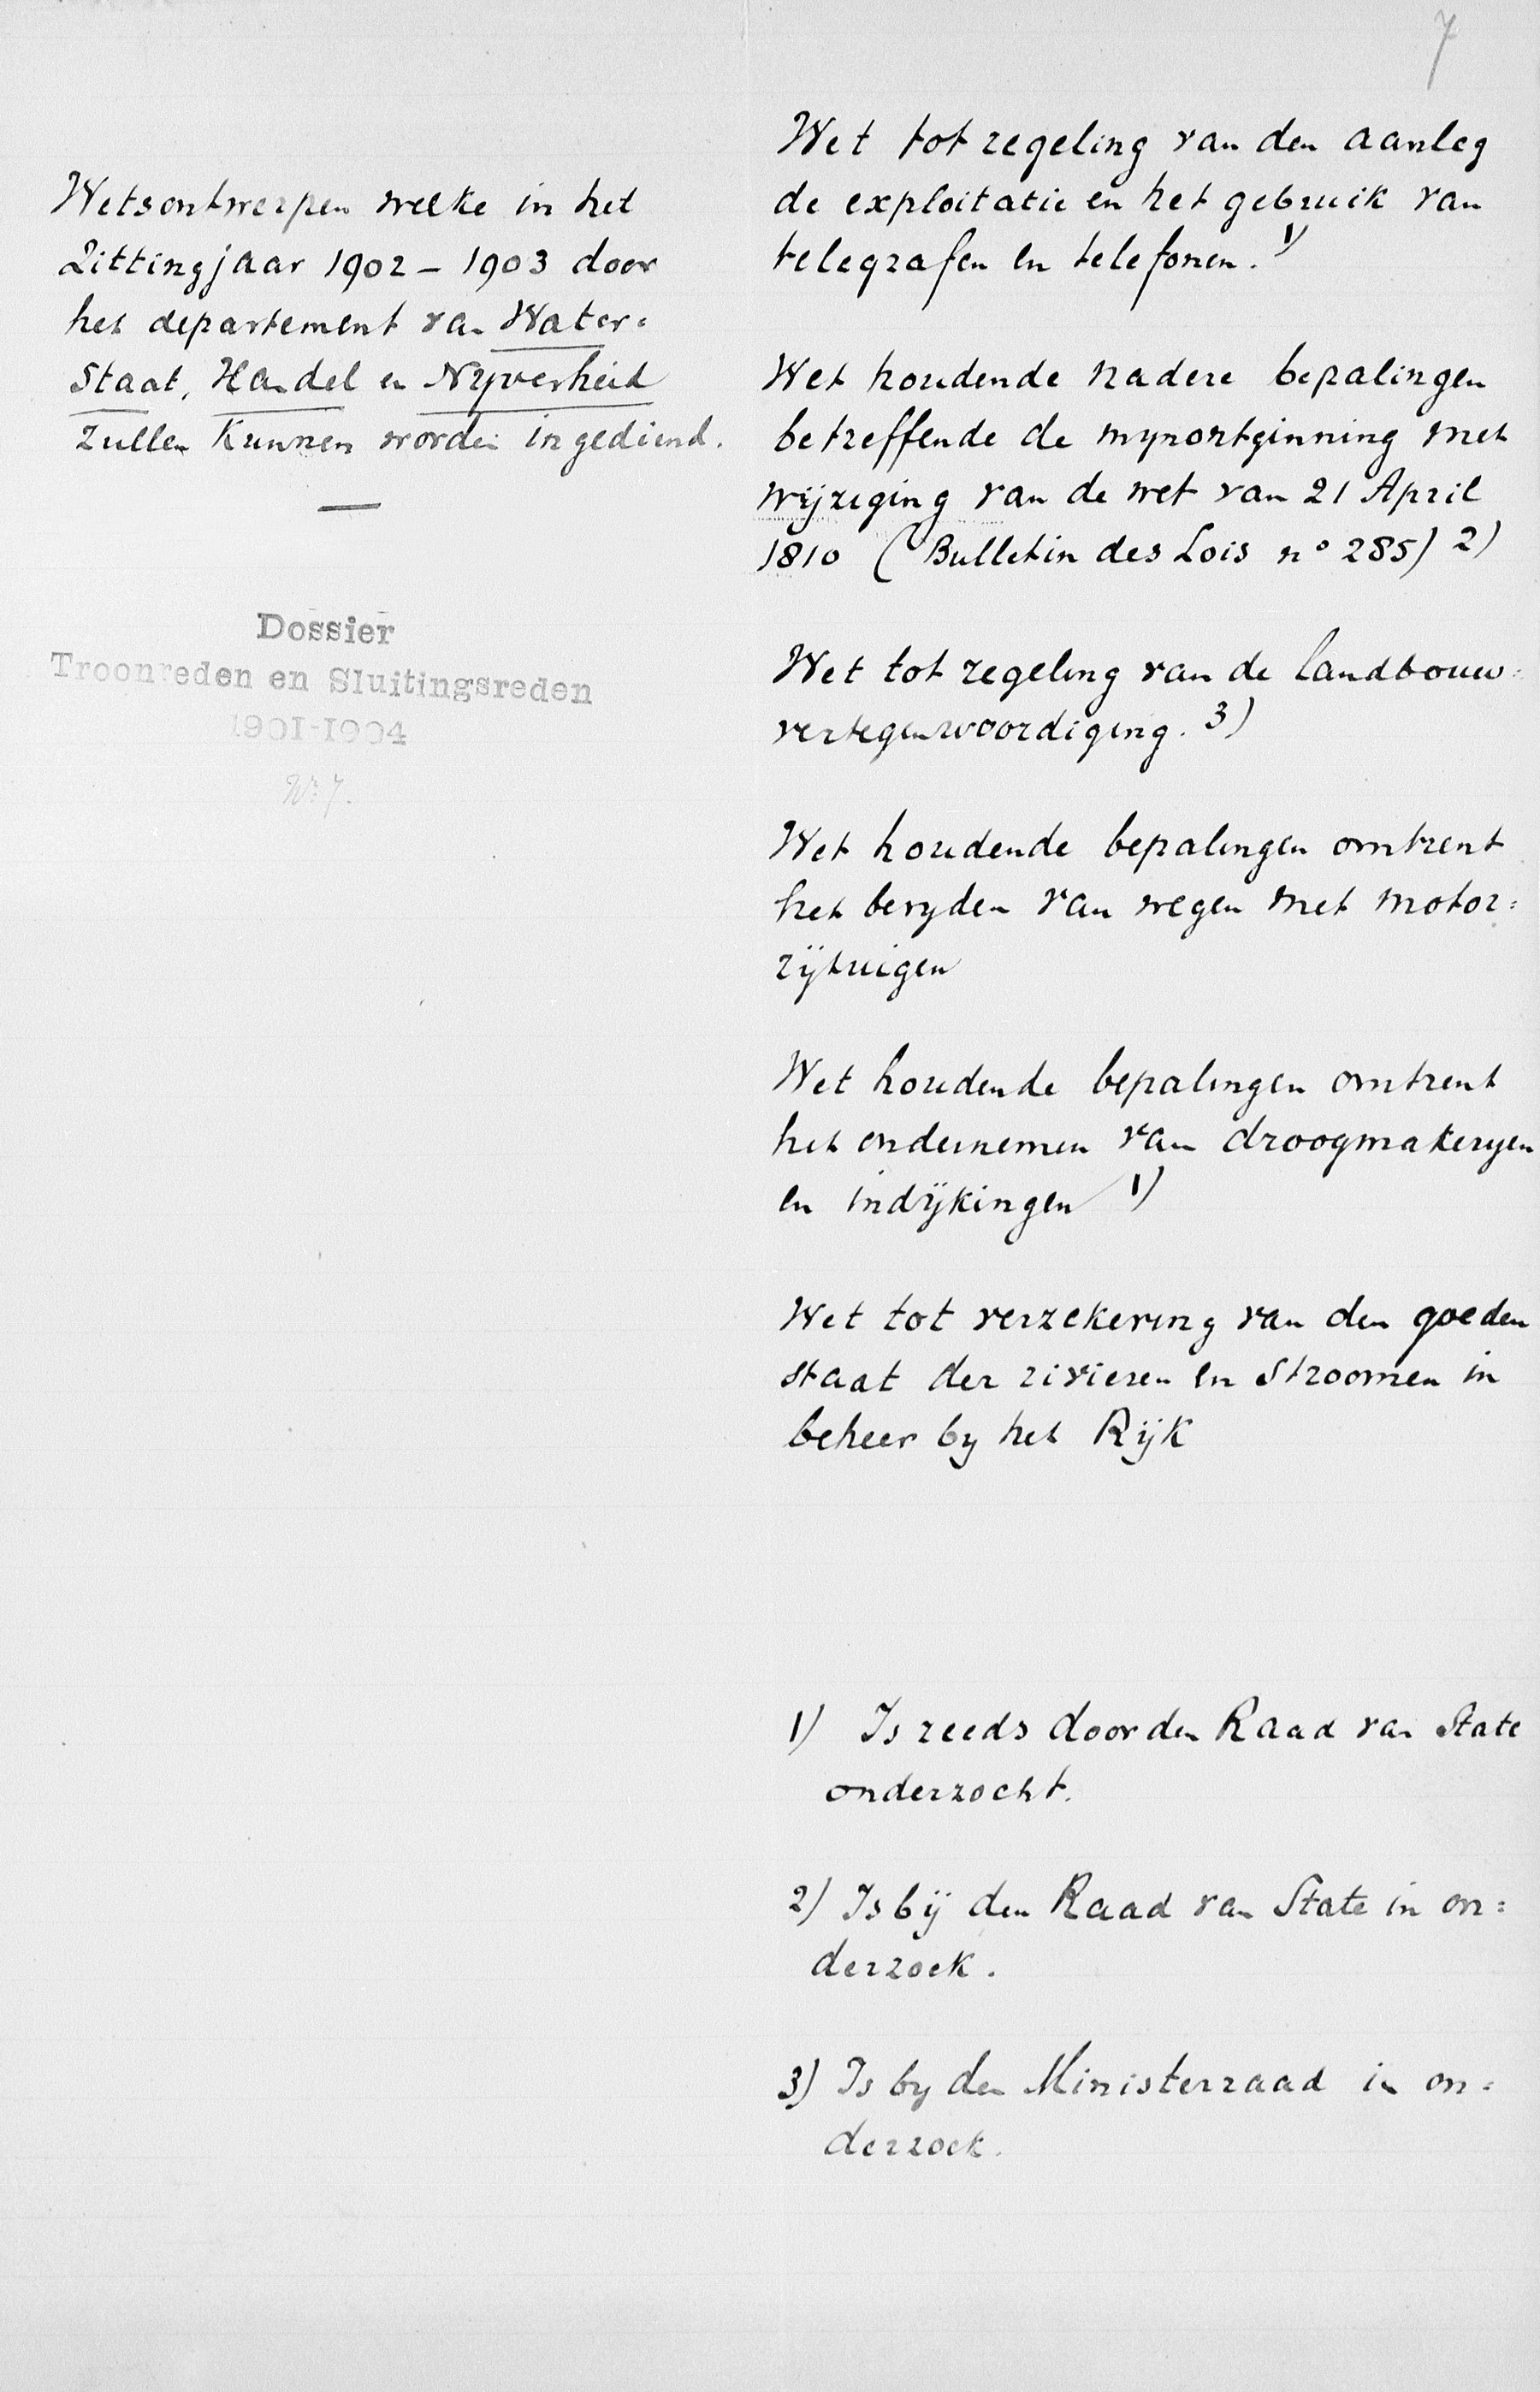 7
Wetsontwerpen welke in het
Zittingjaar 1902 – 1903 door
het departement van Water=
Staat, Handel en Nyverheid
zullen kunnen worden ingediend.
Dossier
Troonreden en Sluitingsreden
1901-1904
No 7.
Wet tot regeling van den aanleg
de exploitatie en het gebruik van
telegrafen en telefonen. 1)
Wet houdende nadere bepalingen
betreffende de mynontginning met
wijziging van de wet van 21 April
1810 (Bulletin des Lois no 285) 2)
Wet tot regeling van de landbouw=
vertegenwoordiging. 3)
Wet houdende bepalingen omtrent
het beryden van wegen met motor=
rijtuigen
Wet houdende bepalingen omtrent
het ondernemen van droogmakeryen
en indijkingen 1)
Wet tot verzekering van den goeden
staat der rivieren en stroomen in
beheer by het Rijk
1) Is reeds door den Raad van State
onderzocht.
2) Is bij den Raad van State in on=
derzoek.
3) Is by den Ministerraad in on=
derzoek.